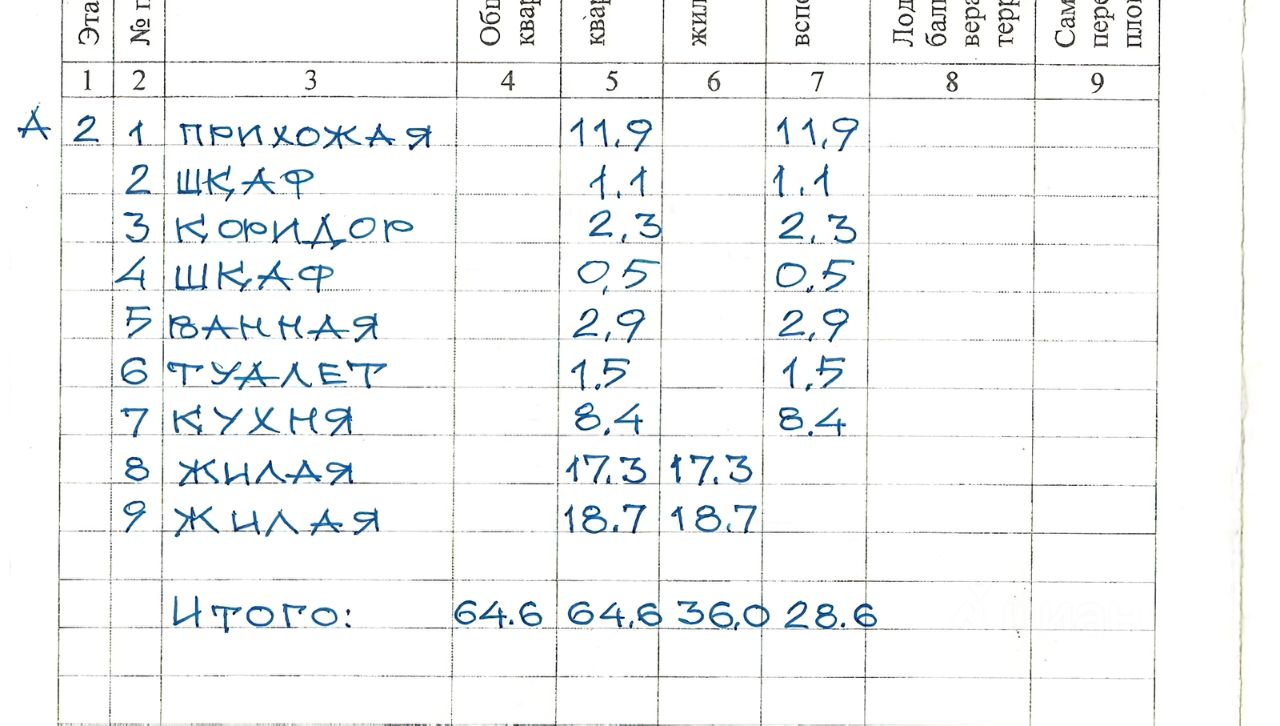 Эта № п Общ квар квар жил вспо Лод балк вера терр Сам пере плоп
1 2 3 4 5 6 7 8 9
А 2 1 ПРИХОЖАЯ 11,9 11,9
2 ШКАФ 1,1 1,1
3 КОРИДОР 2,3 2,3
4 ШКАФ 0,5 0,5
5 ВАННАЯ 2,9 2,9
6 ТУАЛЕТ 1.5 1,5
7 КУХНЯ 8.4 8.4
8 ЖИЛАЯ 17.3 17.3
9 ЖИЛАЯ 18.7 18.7
ИТОГО: 64.6 64,6 36,0 28.6